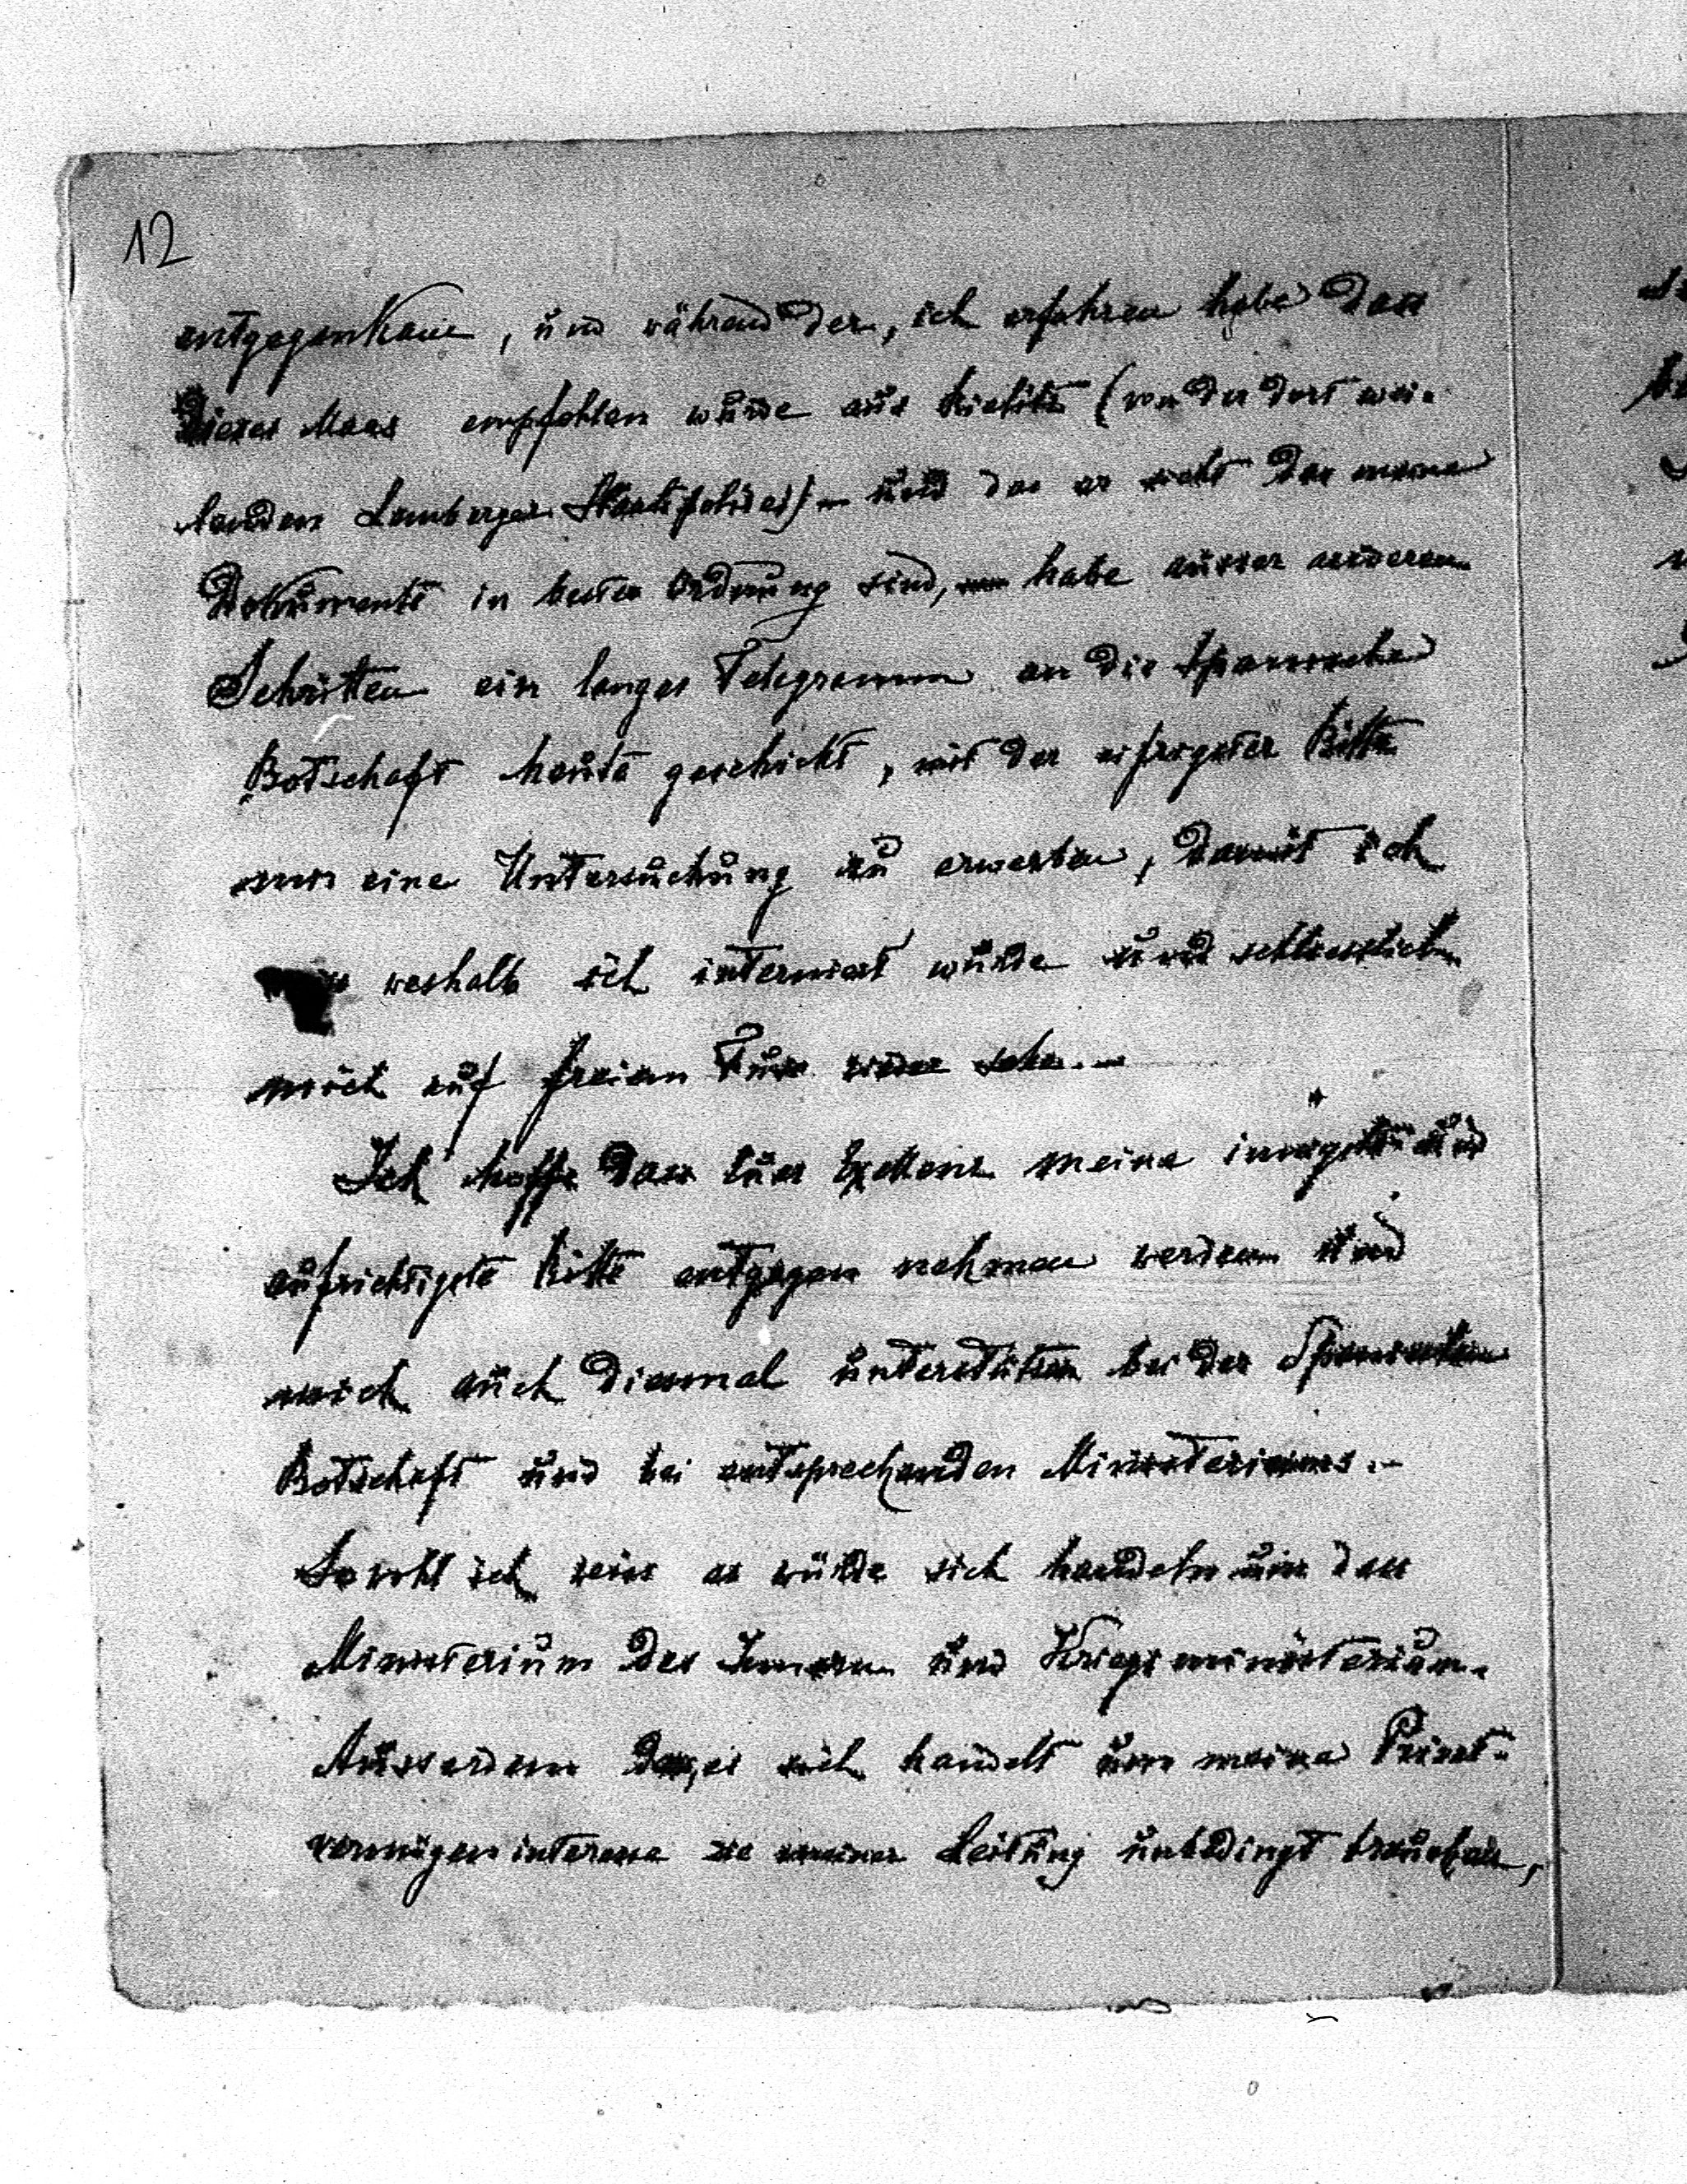 12
entgegenkam, und während der, ich erfahren habe dass
dieses Maas empfohlen wurde aus Bielitz (von der dort wei-
lenden Lemberger Staatspolizei) – und das es nicht der meine
Dokumente in bester Ordnung sind, habe ausser anderen
Schritten ein langes Telegramm an die Spanische
Botschaft heute geschickt, mit der eifrigster Bitte
mir eine Untersuchung zu erwerben, damit ich
weshalb ich interniert wurde und schliesslich
mich auf freien Fuss sehe. –
Ich hoffe dass Euer Exellenz meine innigste und
aufrichtigste Bitte entgegen nehmen werden und
mich auch diesmal unterstützen bei der Spanischen
Botschaft und bei entsprechenden Ministeriums. –
Sowohl ich weiss es würde sich handeln um das
Ministerium des Innern und Kriegsministerium.
Ausserdem das, es sich handelt um meine Privat-
vermögensinteresse die meiner Leitung unbedingt brauchen,